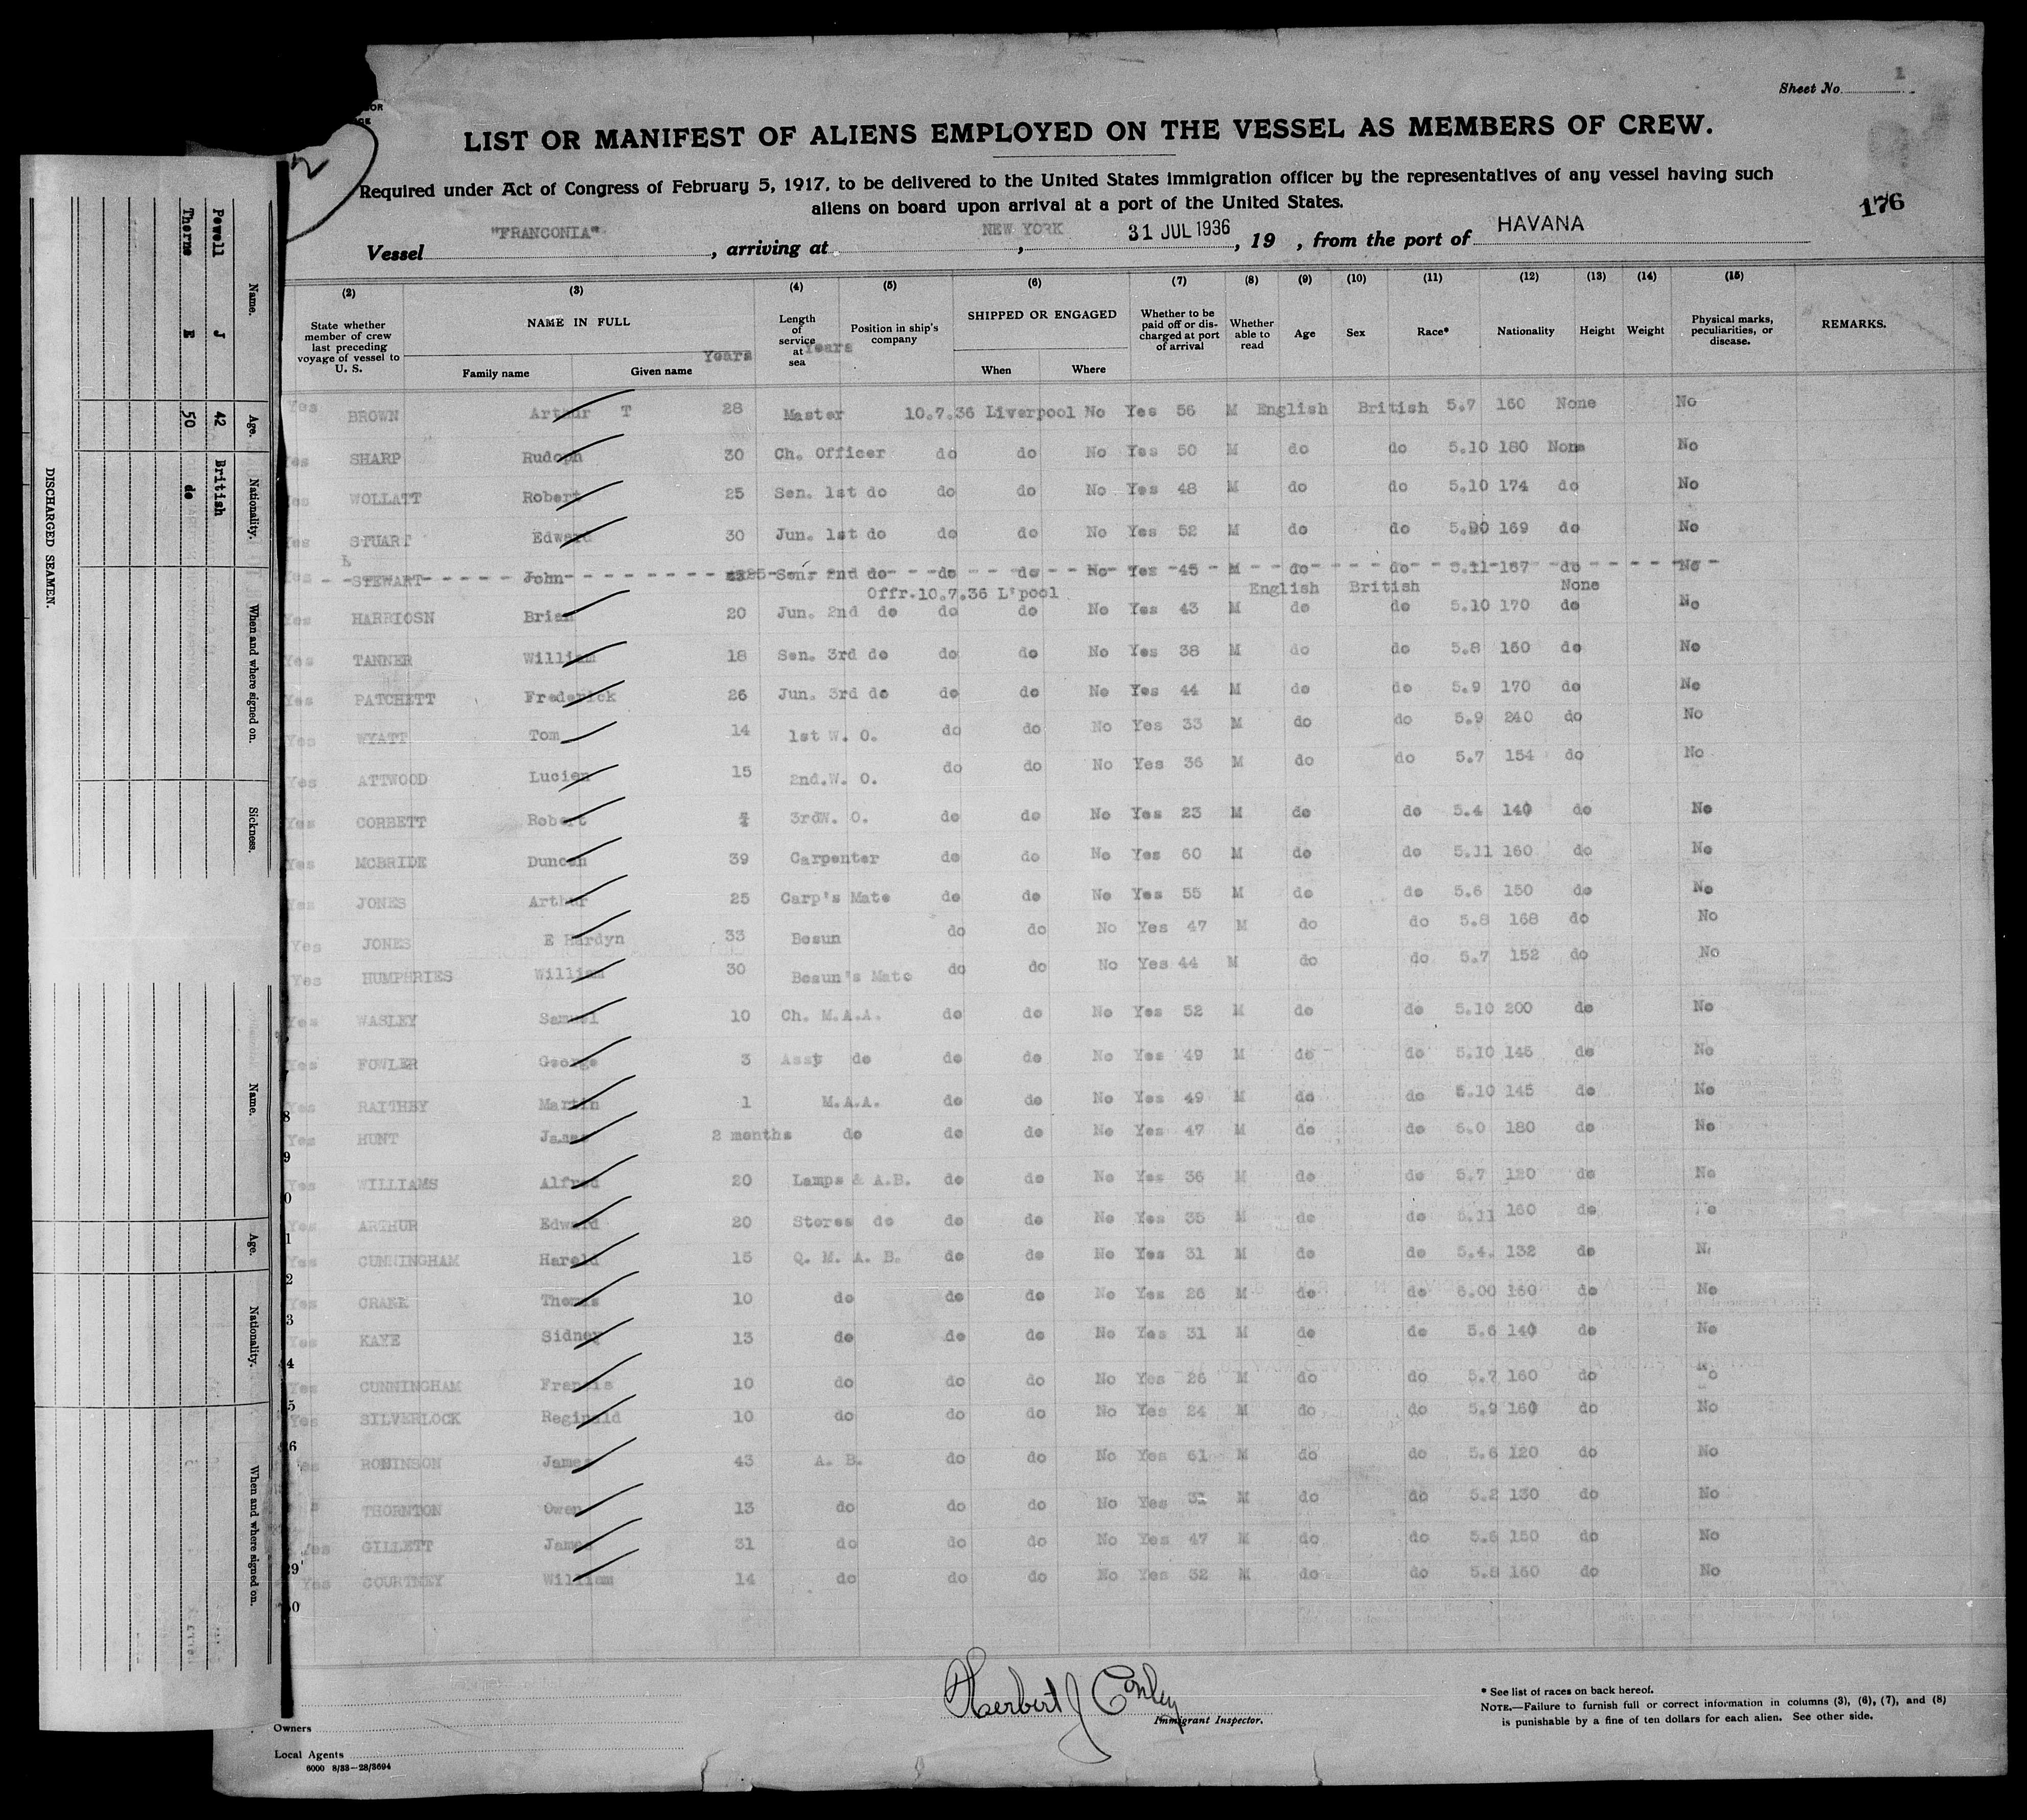 Sheet No. 1
LIST OR MANIFEST OF ALIENS EMPLOYED ON THE VESSEL AS MEMBERS OF CREW.
Required under Act of Congress of February 5, 1917, to be delivered to the United States immigration officer by the representatives of any vessel having such
aliens on board upon arrival at a port of the United States.
176
Vessel "FRANCONIA", arriving at NEW YORK, 31 JUL 1936, 19 , from the port of HAVANA
(2) (3) (4) (5) (6) (7) (8) (9) (10) (11) (12) (13) (14) (15)
State whether member of crew last preceding voyage of vessel to U. S.
NAME IN FULL
Family name Given name Years
Length of service at sea Years
Position in ship's company
SHIPPED OR ENGAGED
When Where
Whether to be paid off or discharged at port of arrival
Whether able to read
Age Sex Race* Nationality Height Weight
Physical marks, peculiarities, or disease.
REMARKS.
Yes BROWN Arthur T 28 Master 10.7.36 Liverpool No Yes 56 M English British 5.7 160 None No
Yes SHARP Rudoph 30 Ch. Officer do do No Yes 50 M do do 5.10 180 None No
Yes WOLLATT Robert 25 Sen. 1st do do do No Yes 48 M do do 5.10 174 do No
Yes STUART Edward 30 Jun. 1st do do do No Yes 52 M do do 169 do No
Yes STEWART John 25 Sen. 2nd do do do No Yes 45 M do do 5.11 167 do No
Offr. 10.7.36 L'pool English British None
Yes HARRIOSN Brian 20 Jun. 2nd do do do No Yes 43 M do do 5.10 170 do No
Yes TANNER William 18 Sen. 3rd do do do No Yes 38 M do do 5.8 150 do No
Yes PATCHETT Frederick 26 Jun. 3rd do do do No Yes 44 M do do 5.9 170 do No
Yes WYATT Tom 14 1st W. O. do do No Yes 33 M do do 5.9 240 do No
Yes ATTWOOD Lucien 15 2nd.W. O. do do No Yes 36 M do do 5.7 154 do No
Yes CORBETT Robert 3rdW. O. do do No Yes 23 M do do 5.4 140 do No
Yes MCBRIDE Duncan 39 Carpenter do do No Yes 60 M do do 5.11 160 do No
Yes JONES Arthur 25 Carp's Mate do do No Yes 55 M do do 5.6 150 do No
Yes JONES E Hardyn 33 Bosun do do No Yes 47 M do do 5.8 168 do No
Yes HUMPHRIES William 30 Bosun's Mate do do No Yes 44 M do do 5.7 152 do No
Yes WASLEY Samuel 10 Ch. M.A.A. do do No Yes 52 M do do 5.10 200 do No
Yes FOWLER George 3 Asst do do do No Yes 49 M do do 5.10 145 do No
Yes RAITHBY Martin 1 M.A.A. do do No Yes 49 M do do 5.10 145 do No
Yes HUNT James 2 months do do do No Yes 47 M do do 6.0 180 do No
Yes WILLIAMS Alfred 20 Lamps & A.B. do do No Yes 36 M do do 5.7 120 do No
Yes ARTHUR Edward 20 Stores do do do No Yes 35 M do do 5.11 160 do No
Yes CUNNINGHAM Harold 15 Q. M. A. B. do do No Yes 31 M do do 5.4. 132 do No
Yes CRANK Thomas 10 do do do No Yes 26 M do do 6.00 160 do No
Yes KAYE Sidney 13 do do do No Yes 31 M do do 5.6 140 do No
Yes CUNNINGHAM Francis 10 do do do No Yes 26 M do do 5.7 160 do No
Yes SILVERLOCK Reginald 10 do do do No Yes 24 M do do 5.9 160 do No
Yes ROBINSON James 43 A. B. do do No Yes 61 M do do 5.6 120 do No
THORNTON Owen 13 do do do No Yes M do do 5.2 130 do No
Yes GILLETT James 31 do do do No Yes 47 M do do 5.6 150 do No
Yes COURTNEY William 14 do do do No Yes 32 M do do 5.8 160 do No
Herbert J Conley
Immigrant Inspector.
Owners
Local Agents
6000 8/33—28/3694
* See list of races on back hereof.
NOTE.—Failure to furnish full or correct information in columns (3), (6), (7), and (8)
is punishable by a fine of ten dollars for each alien. See other side.
DISCHARGED SEAMEN.
Name. Age. Nationality. When and where signed on. Sickness.
Powell J 42 British
Thorne E 50 do
Name. Age. Nationality. When and where signed on.